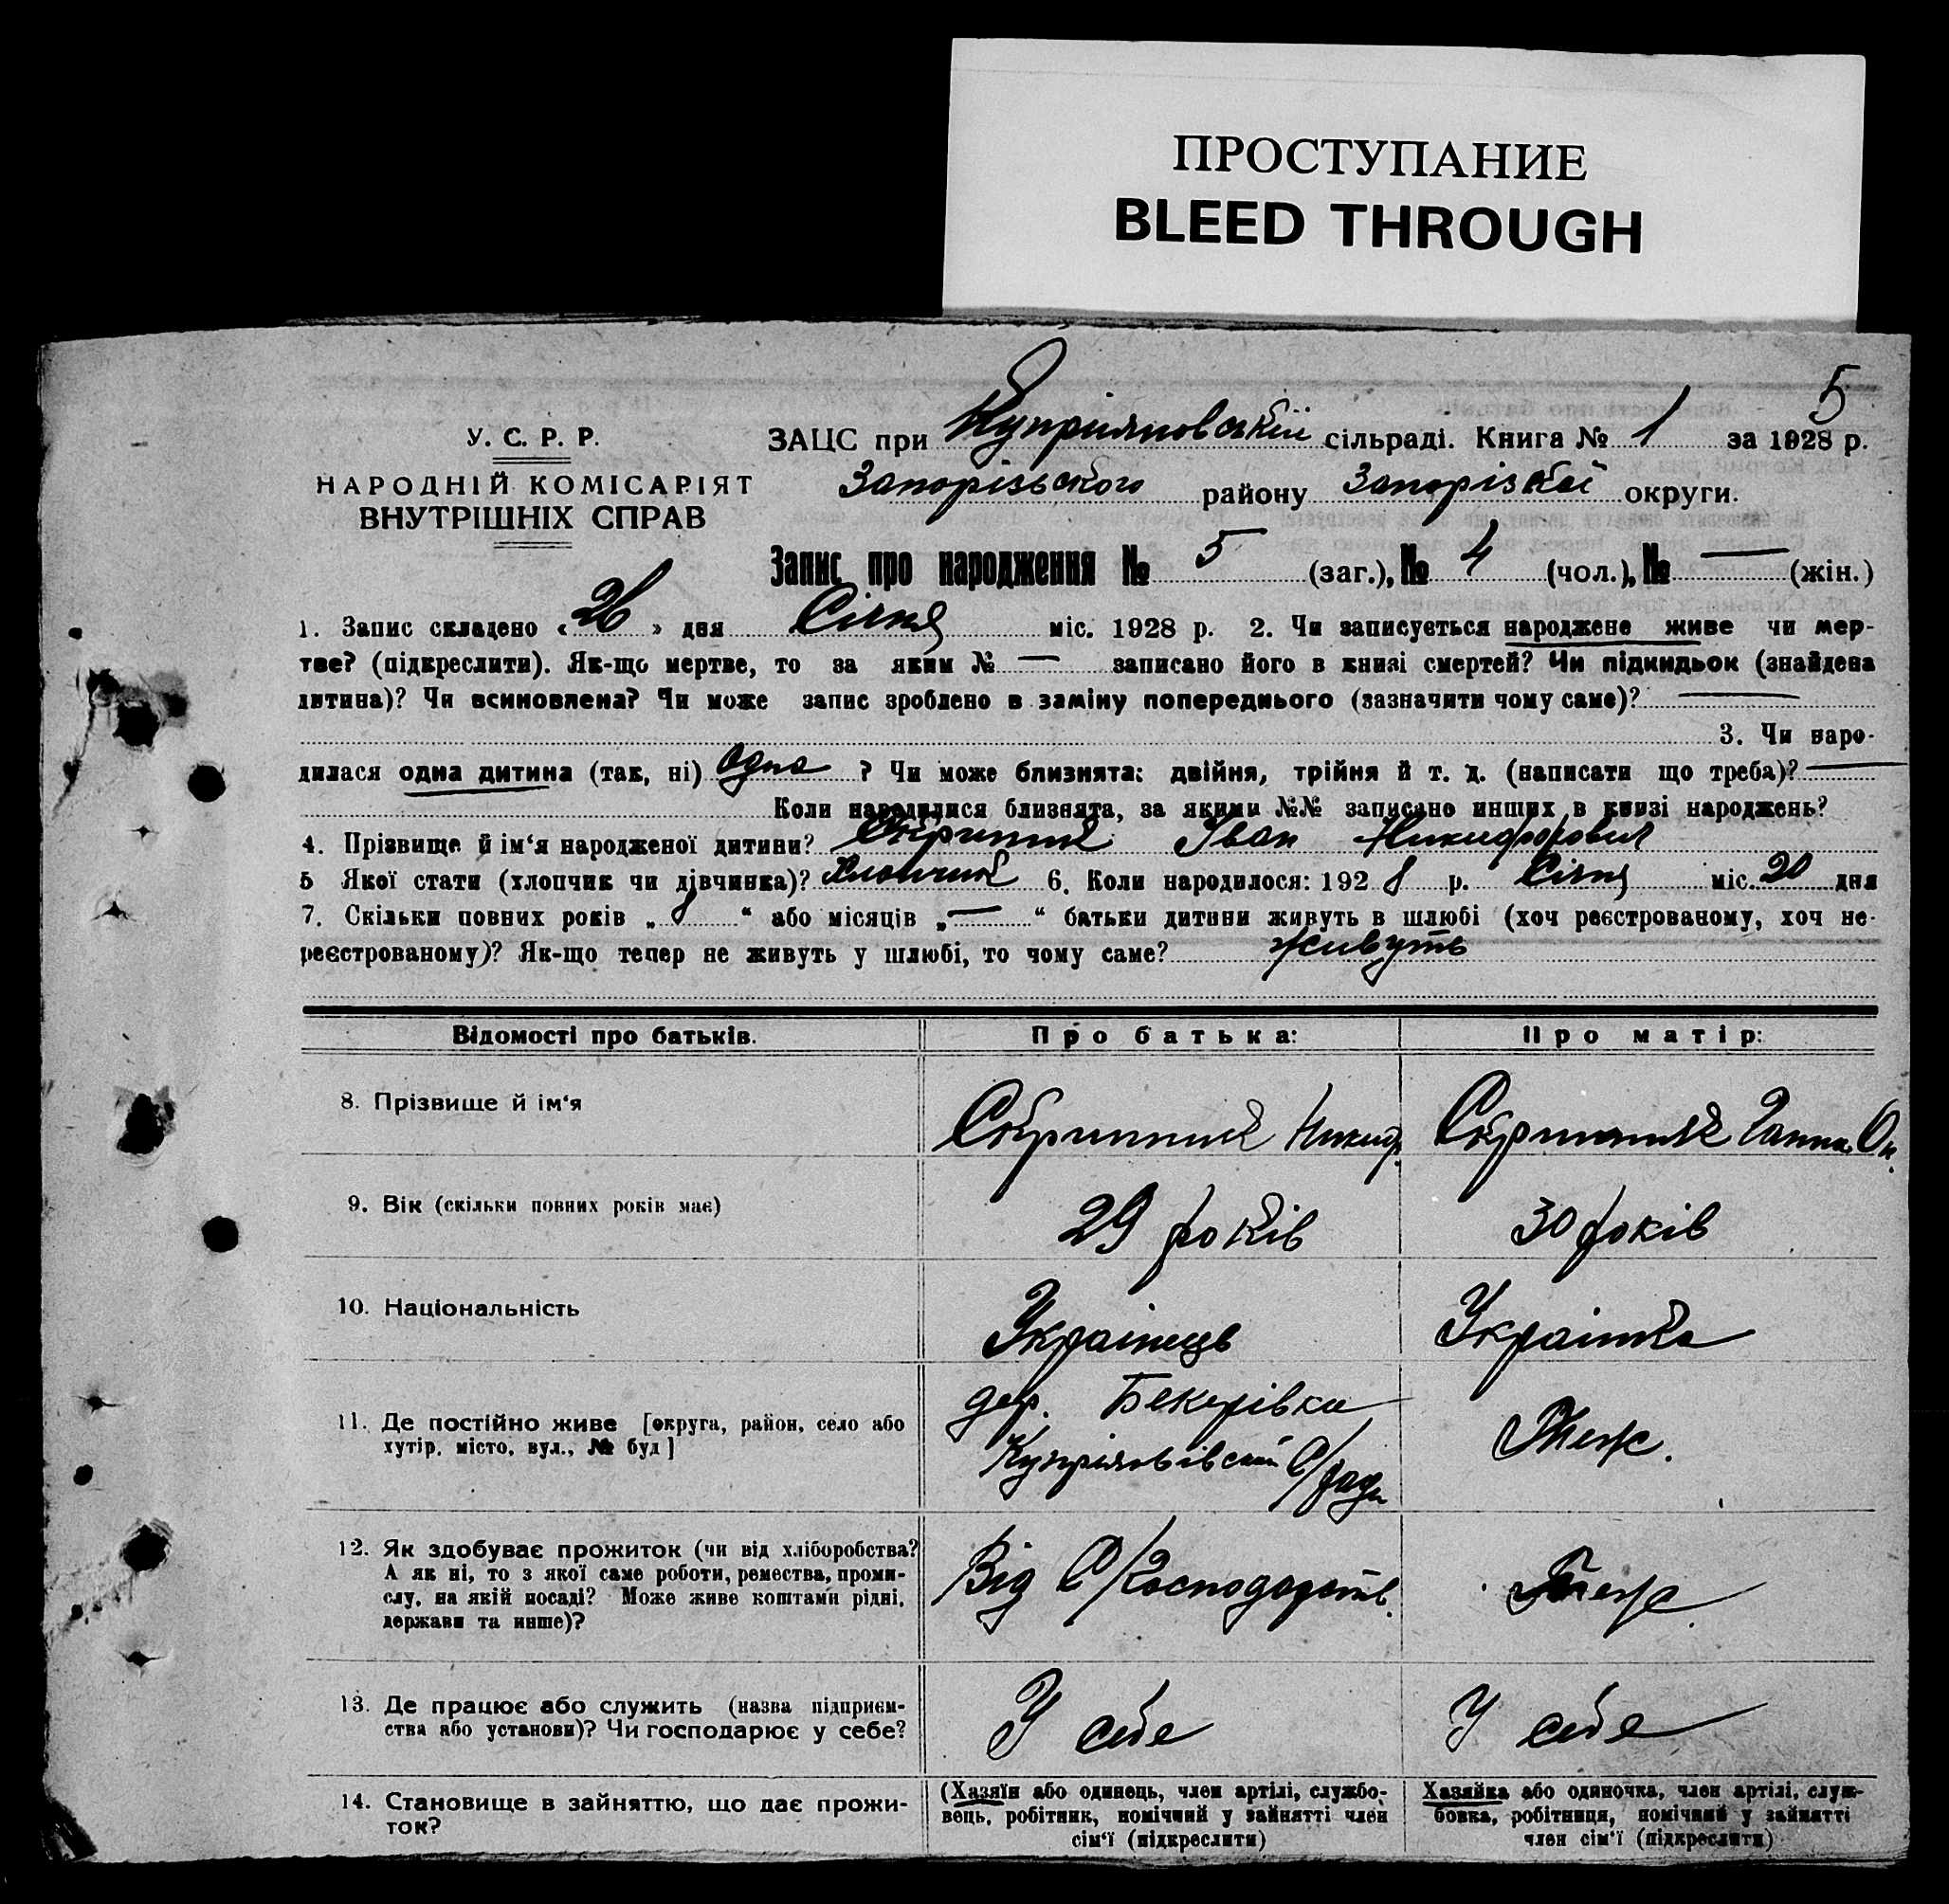 ПРОСТУПАНИЕ
BLEED THROUGH
5
У. С. Р. Р.
НАРОДНІЙ КОМІСАРІЯТ
ВНУТРІШНІХ СПРАВ
ЗАЦС при Купріяновській сільраді. Книга № 1 за 1928 р.
Запорізького району Запорізької округи.
Запис про народження № 5 (заг.), № 4 (чол.), № — (жін.)
1. Запис складено « 26 » дня Січня міс. 1928 р. 2. Чи записується народжене живе чи мер-
тве? (підкреслити). Як-що мертве, то за яким № — записано його в книзі смертей? Чи підкидьок (знайдена
дитина)? Чи всиновлена? Чи може запис зроблено в заміну попереднього (зазначити чому саме)? —
3. Чи наро-
дилася одна дитина (так, ні) Одна ? Чи може близнята: двійня, трійня й т. д. (написати що треба)? —
Коли народилися близнята, за якими №№ записано инших в книзі народжень?
4. Прізвище й ім‘я народженої дитини? Скрипник Іван Никифорович
5 Якої стати (хлопчик чи дівчинка)? Хлопчик 6. Коли народилося: 192 8 р. Січня міс. 20 дня
7. Скільки повних років „ 8 “ або місяців „ — “ батьки дитини живуть в шлюбі (хоч реєстрованому, хоч не-
реєстрованому)? Як-що тепер не живуть у шлюбі, то чому саме? живуть
Відомості про батьків. Про батька: Про матір:
8. Прізвище й ім‘я Скрипник Никиф. Скрипник Ганна Он.
9. Вік (скільки повних років має) 29 років 30 років
10. Національність Українець Українка
11. Де постійно живе [округа, район, село або
хутір, місто, вул., № буд]
дер. Бекерівка
Купріянівській С/ради
Теж.
12. Як здобуває прожиток (чи від хліборобства?
А як ні, то з якої саме роботи, ремества, проми-
слу, на якій посаді? Може живе коштами рідні,
держави та инше)?
Від С/Господарств.
Теж.
13. Де працює або служить (назва підприєм-
ства або установи)? Чи господарює у себе?
У себе У себе
14. Становище в зайняттю, що дає прожи-
ток?
(Хазяїн або одинець, член артілі, службо-
вець, робітник, помічний у зайнятті член
сім‘ї (підкреслити)
Хазяйка або одиночка, член артілі, служ-
бовка, робітниця, помічний у зайнятті
член сім‘ї (підкреслити)